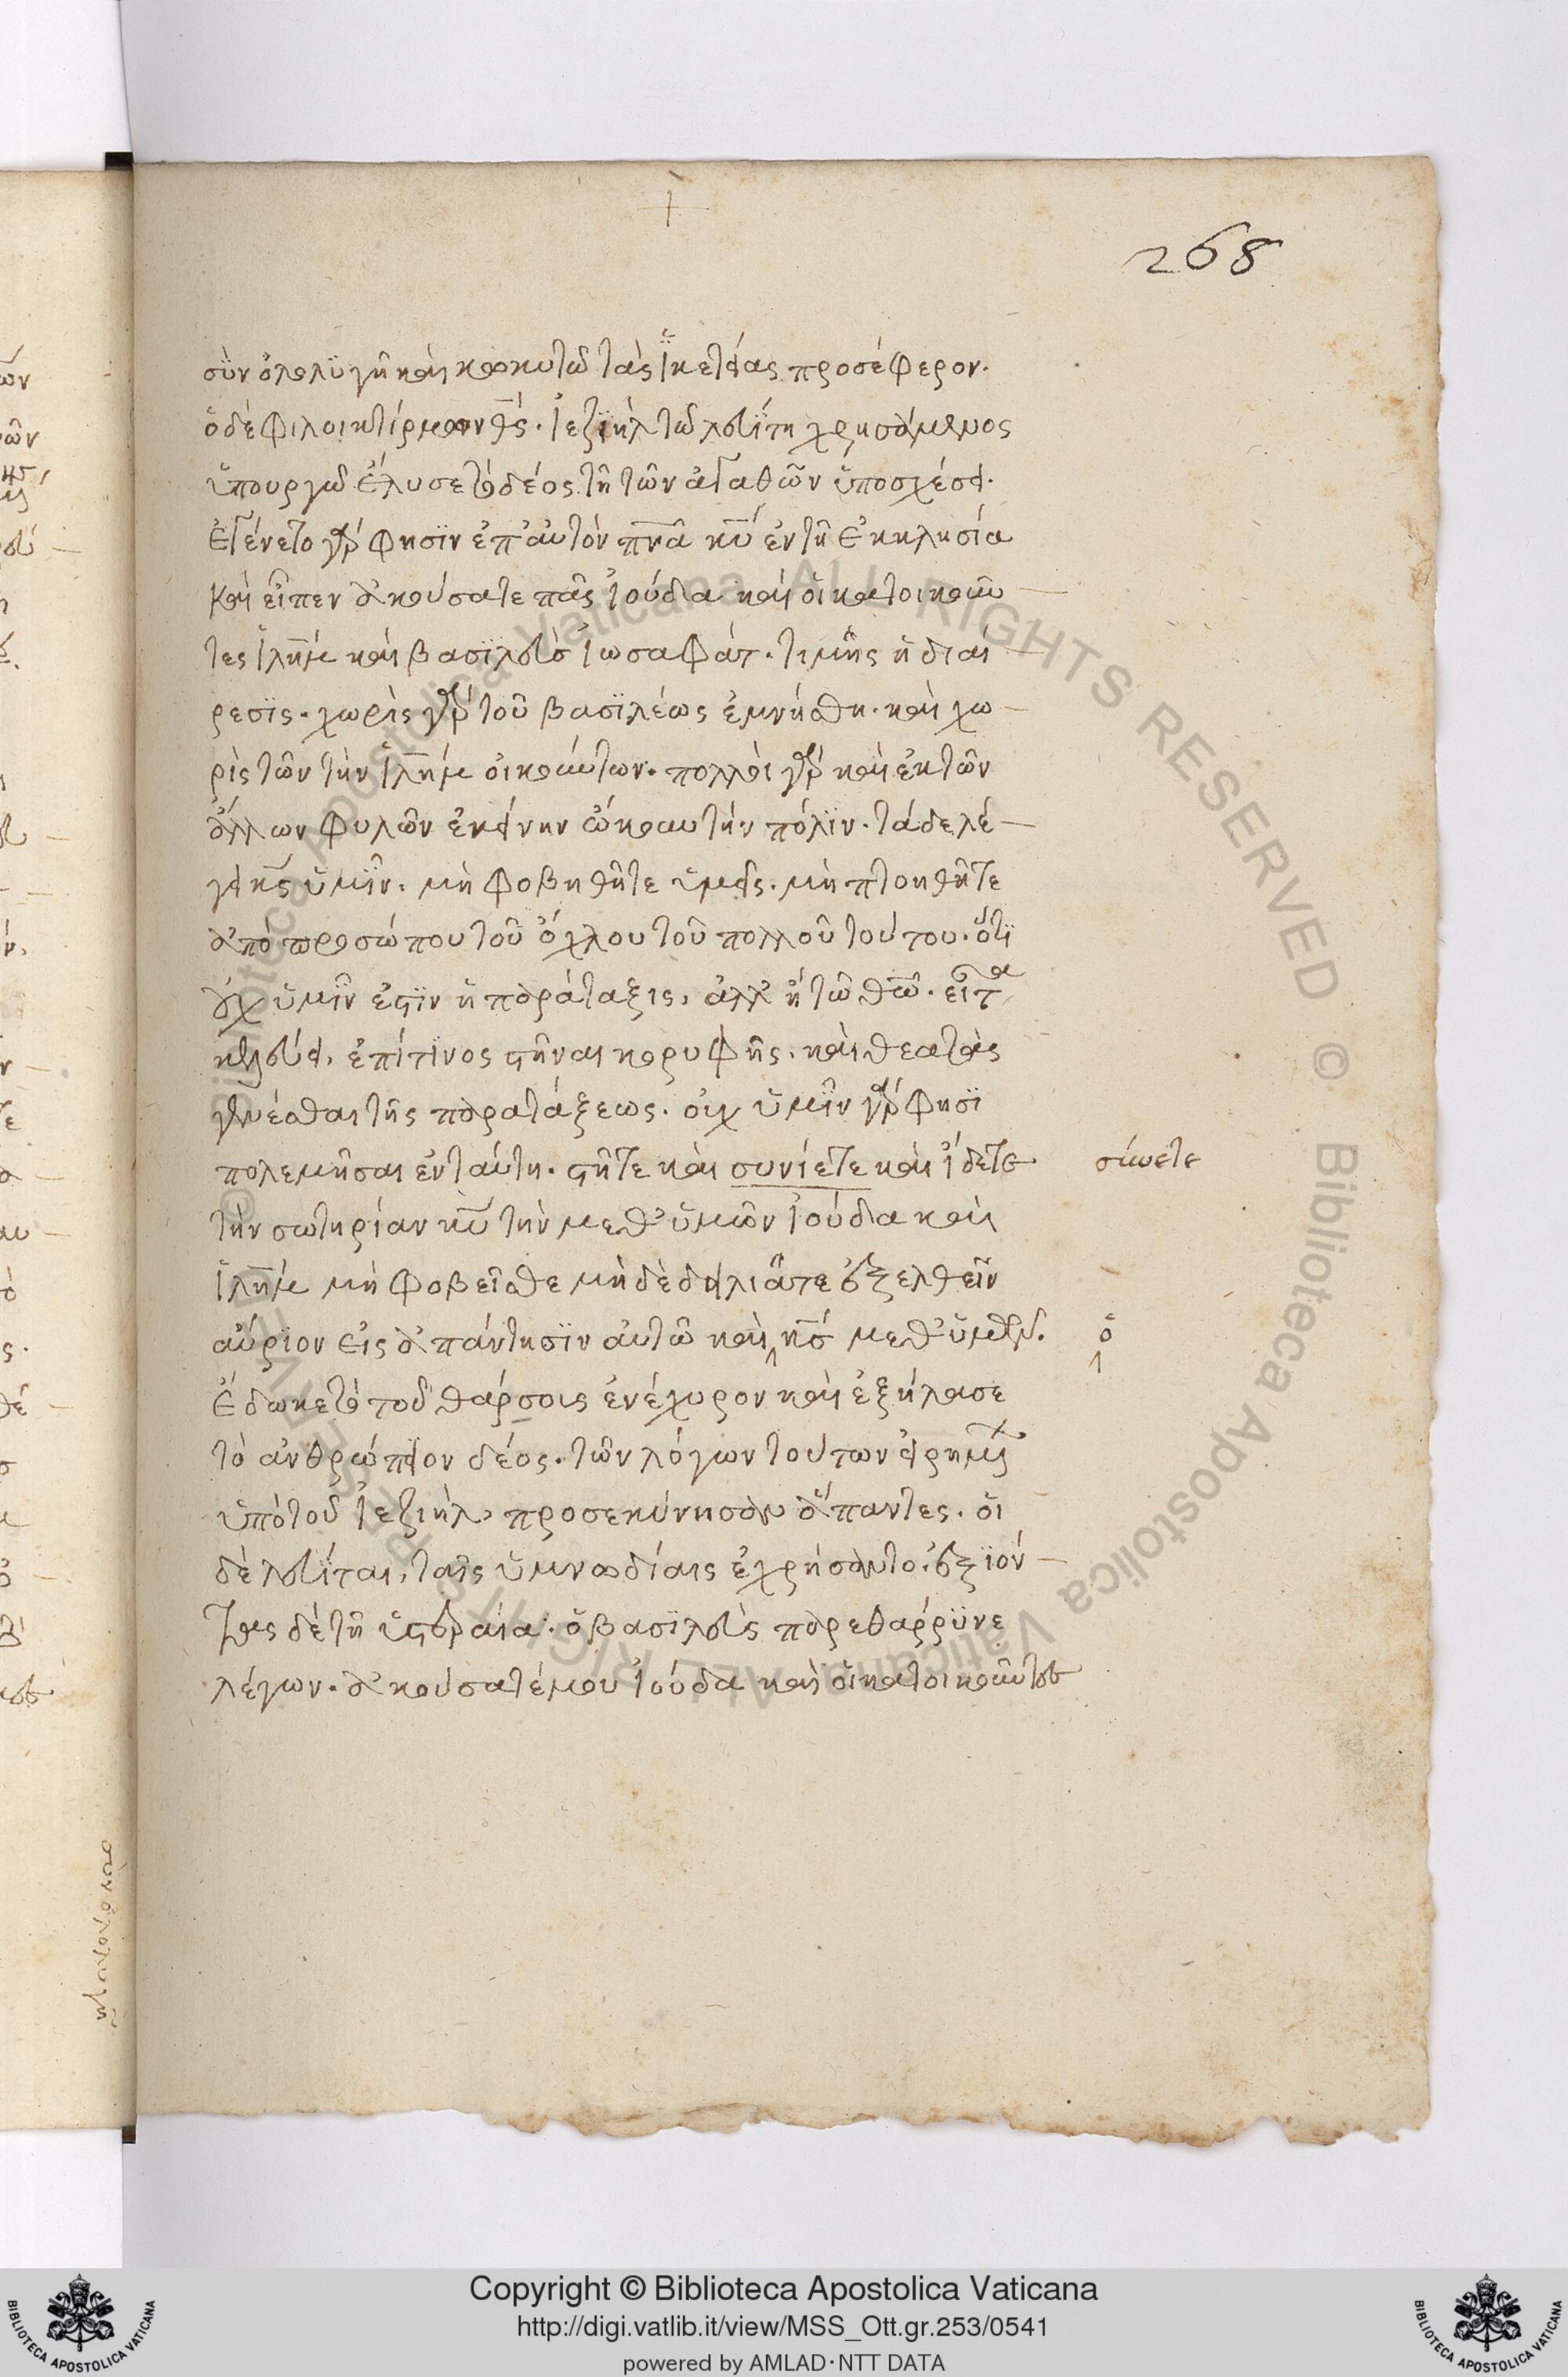 268
σὺν ὀλολϋγῆ καὶ κωκυτῶ τὰς ἱκετείας προσέφερον.
ὁ δὲ φιλοικτίρμων θς̅. ἰεζϊὴλ τῶ λευΐτη χρησάμενος
ὑπουργῶ ἔλυσε τὸ δέος τῆ τῶν ἀγαθῶν ὑποσχέσει.
ἐγένετο γὰρ φησϊν ἐπ' ἀυτὸν πνᾶ κυ̅ ἐν τῆ ἐκκλησία
καὶ εἶπεν ἀκούσατε πᾶς ἰούδα καὶ οἱ κατοικοῦν
τες ἱλη̅μ καὶ βασϊλεὺς ἰωσαφάτ. τιμῆς ἡ διαί
ρεσϊς. χωρὶς γὰρ τοῦ βασϊλέως ἐμνήσθη. καὶ χω
ρὶς τῶν τὴν ἱλη̅μ οἰκούντων. πολλοὶ γὰρ καὶ ἐκ τῶν
ἄλλων φυλῶν ἐκείνην ὤκουν τὴν πόλϊν. τάδε λέ
γει κς̅ ὑμῖν. μὴ φοβηθῆτε ὑμεῖς. μὴ πτοηθῆτε
ἀπὸ προσώπου τοῦ ὄχλου τοῦ πολλοῦ τούτου. ὅτϊ
οὐχ ὑμῖν ἐστϊν ἡ παράταξις, ἀλλ' ἢ τῶ θω̅. εἶτα
κελεύει, ἐπί τϊνος στῆναι κορυφῆς. καὶ θεατὰς
γενέσθαι τῆς παρατάξεως. οὐχ ὑμῖν γὰρ φησϊ
πολεμῆσαι ἐν ταύτη. στῆτε καὶ συνίετε καὶ ἴδετε
σύνετε
τὴν σωτηρίαν κυ̅ τὴν μεθ' ὑμῶν ἰούδα καὶ
ἱλη̅μ μὴ φοβεῖσθε μὴ δὲ δειλιᾶτε ἐξελθεῖν
αὔριον εἰς ἀπάντησϊν ἀυτῶ καὶ κς̅ μεθ' ὑμῶν.
ὁ
ἔδωκε τὸ τοῦ θάρσους ἐνέχυρον καὶ ἐξήλασε
τὸ ἀνθρώπειον δέος. τῶν λόγων τούτων εἰρημένων
ὑπὸ τοῦ ἰεζιὴλ, προσεκύνησαν ἅπαντες. οἱ
δὲ λευΐται, ταῖς ὑμνωδίαις ἐχρήσαντο. ἐξϊόν
τας δὲ τῆ ὑστεραία. ὁ βασϊλεὺς παρεθάρρϋνε
λέγων. ἀκούσατέ μου ἰούδα καὶ οἱ κατοικοῦντες
Copyright © Biblioteca Apostolica Vaticana
http://digi.vatlib.it/view/MSS_Ott.gr.253/0541
powered by AMLAD·NTT DATA